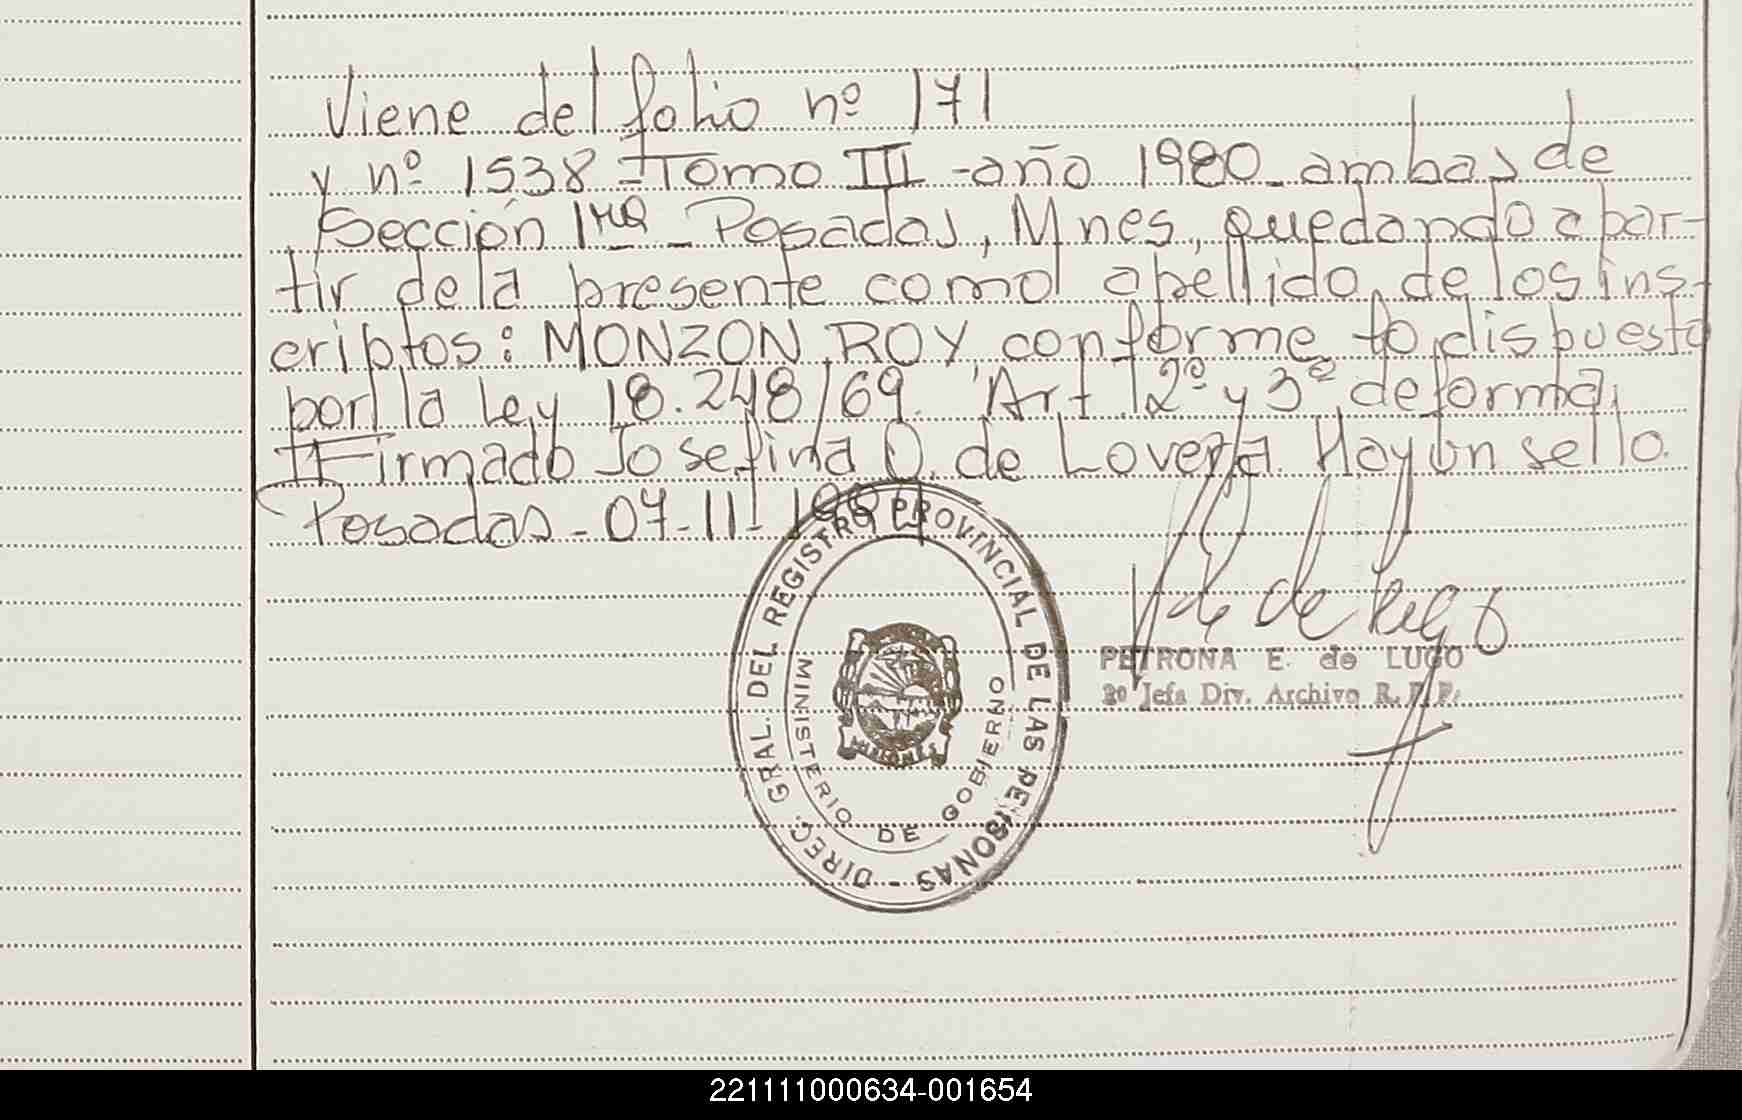 Viene del folio nº 171
y nº 1538 - Tomo III - año 1980 - ambas de
Sección 1ra - Posadas, Mnes, quedando a par-
tir de la presente como apellido de los ins-
criptos: MONZON ROY conforme lo dispuesto
por la Ley 18.248/69. Art 2º y 3º de forma,
Firmado Josefina O. de Lovera Hay un sello.
Posadas - 07-11-1984
DIREC. GRAL. DEL REGISTRO PROVINCIAL DE LAS PERSONAS -
MINISTERIO DE GOBIERNO
MISIONES
PETRONA E. de LUGO
2º Jefa Div. Archivo R.P.P.
221111000634-001654